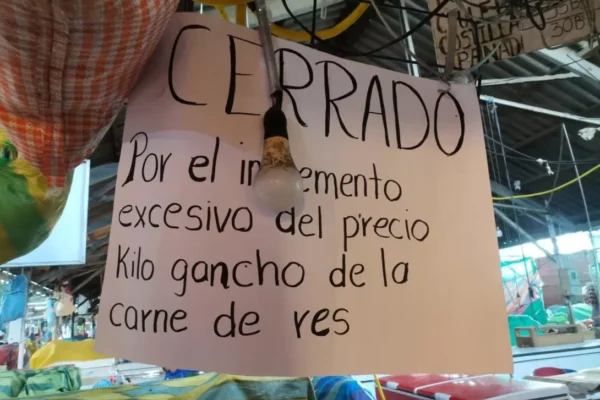 CERRADO
Por el incremento
excesivo del precio
Kilo gancho de la
carne de res
COSTILLA
30B